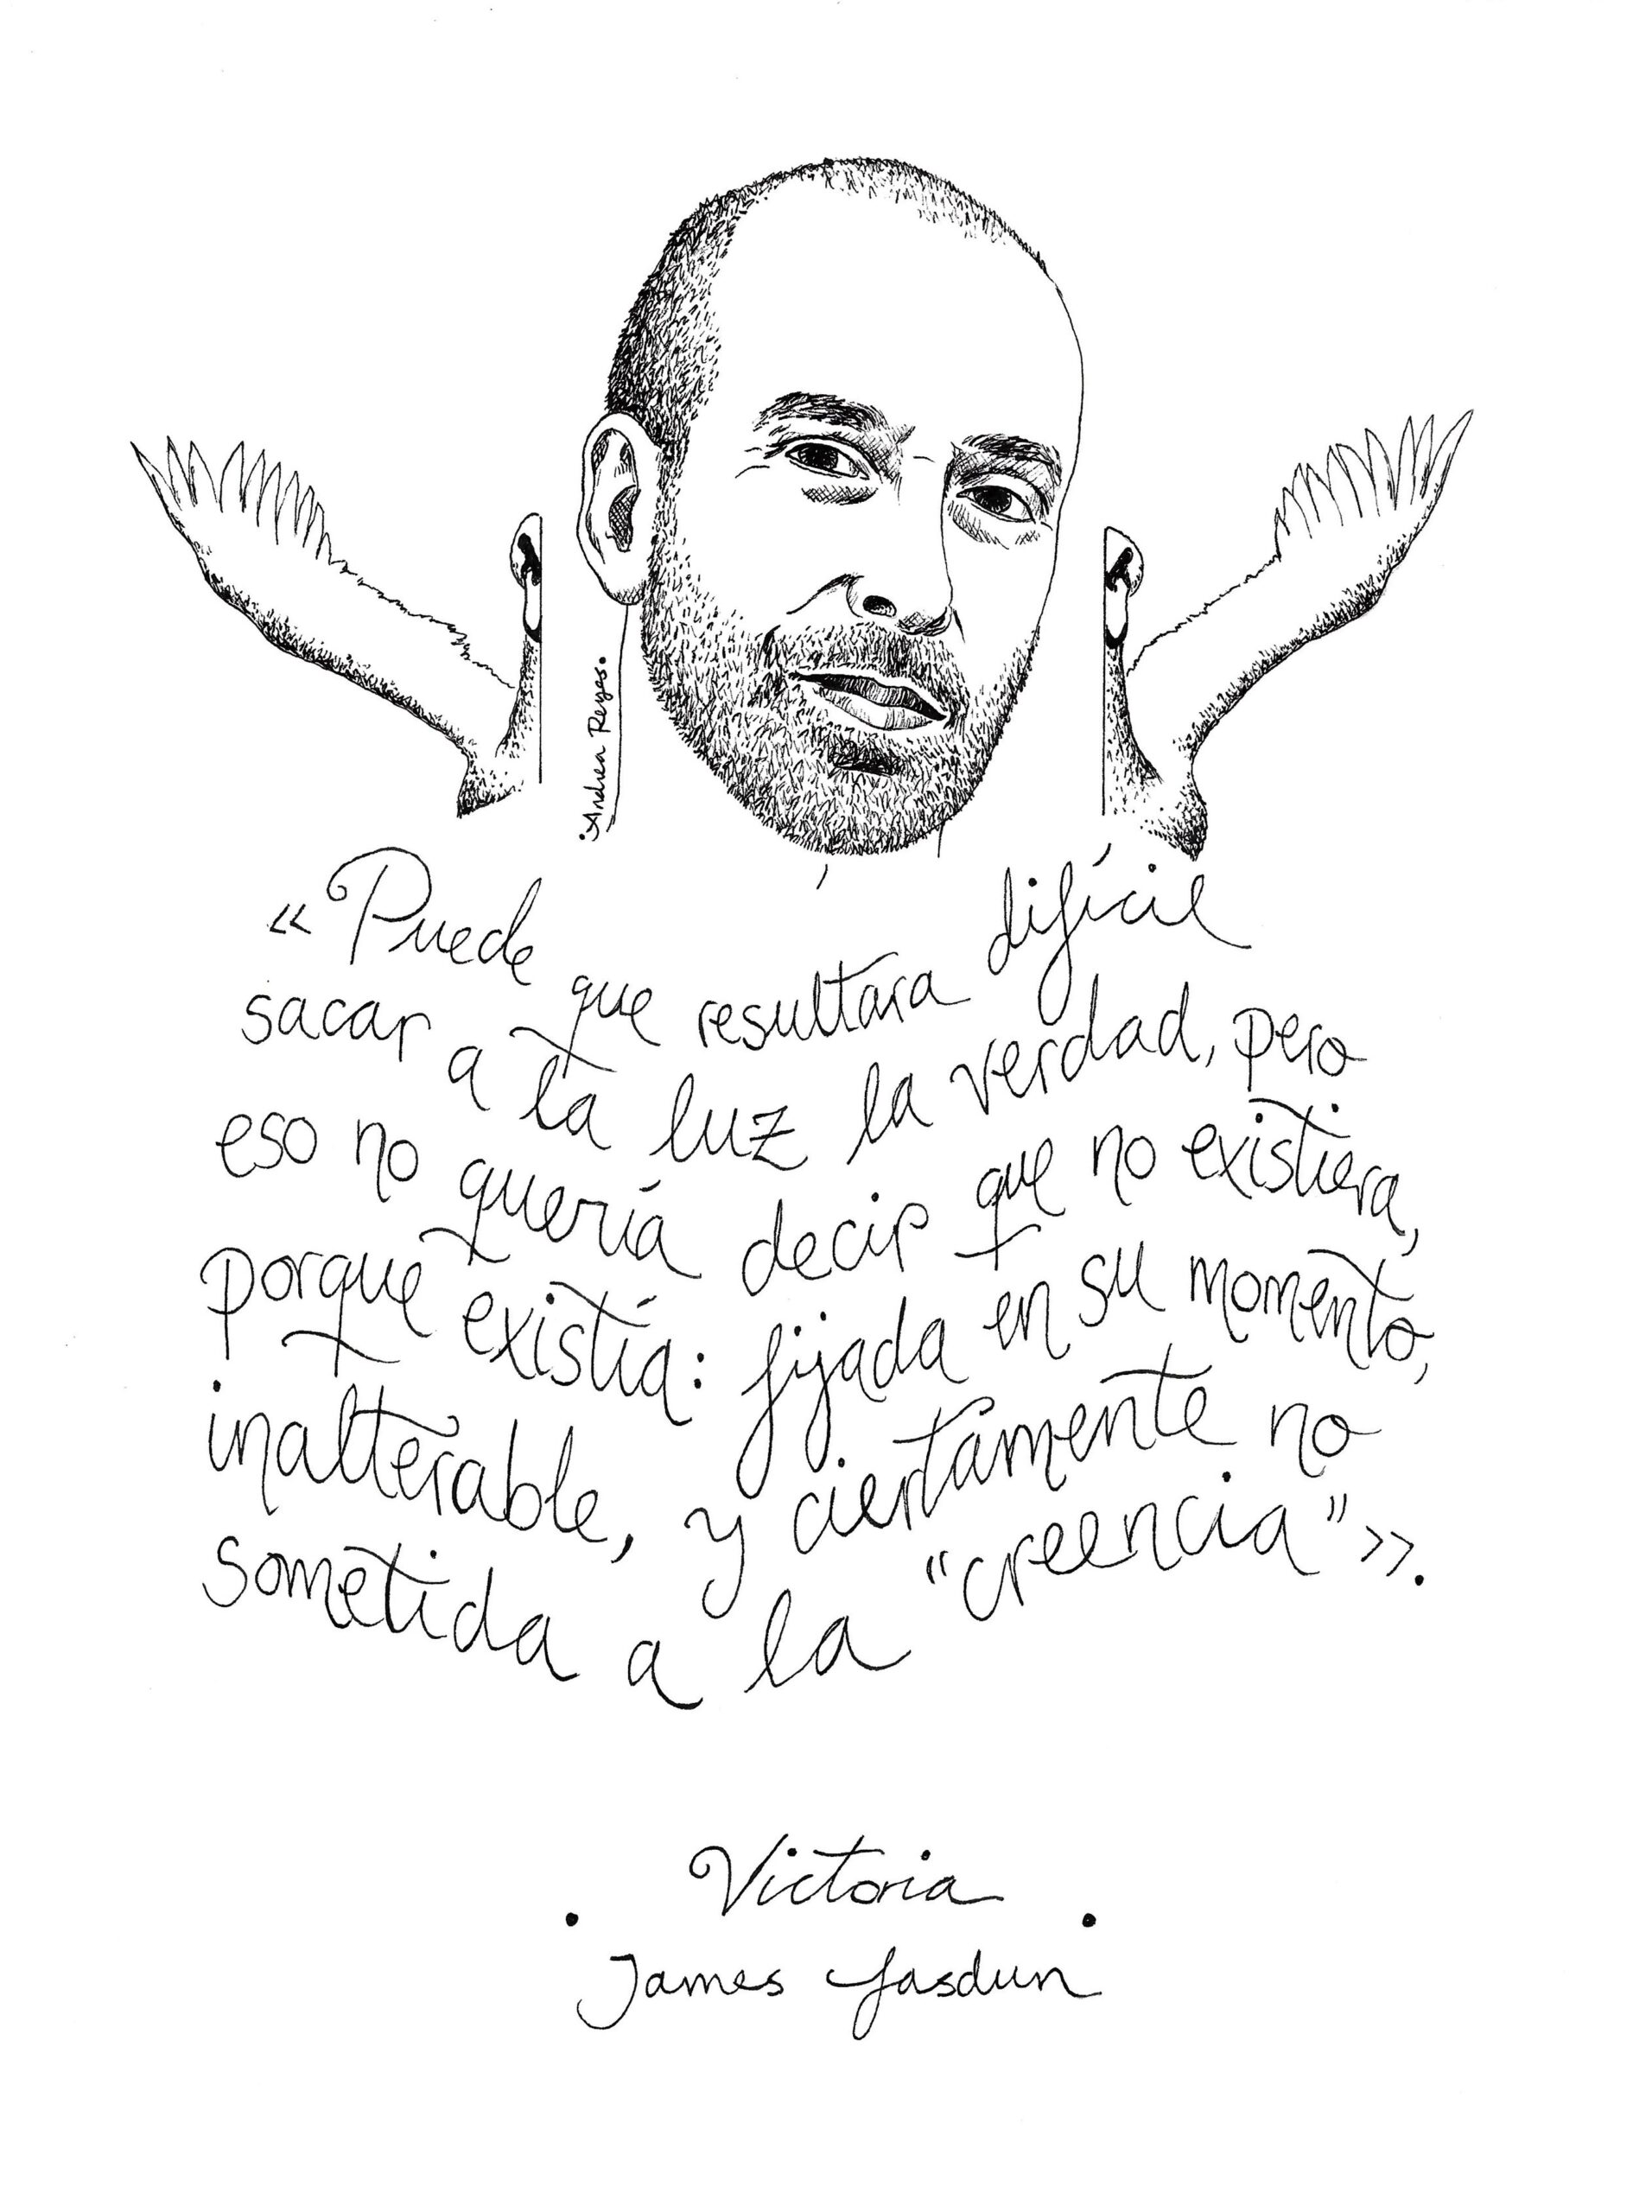 Andrea Reyes.
«Puede que resultara difícil
sacar a la luz la verdad, pero
eso no quería decir que no existiera,
porque existía: fijada en su momento,
inalterable, y ciertamente no
sometida a la “creencia”».
Victoria
. James Lasdun .